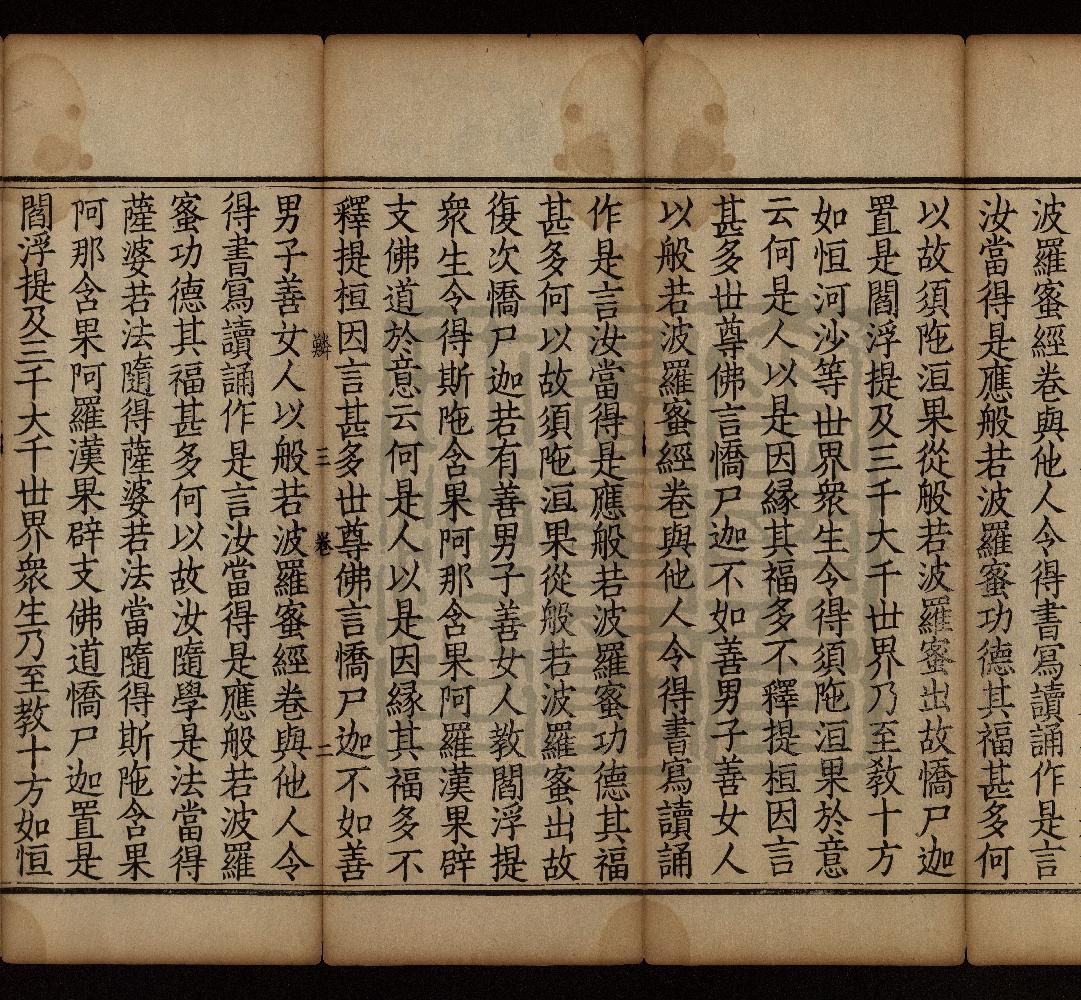 波羅蜜經卷與他人令得書寫讀誦作是言
汝當得是應般若波羅蜜功德其福甚多何
以故須陁洹果從般若波羅蜜出故憍尸迦
置是閻浮提及三千大千世界乃至教十方
如恒河沙等世界衆生令得須陁洹果於意
云何是人以是因緣其福多不釋提桓因言
甚多世尊佛言憍尸迦不如善男子善女人
以般若波羅蜜經卷與他人令得書寫讀誦
作是言汝當得是應般若波羅蜜功德其福
甚多何以故須陁洹果從般若波羅蜜出故
復次憍尸迦若有善男子善女人教閻浮提
衆生令得斯陁含果阿那含果阿羅漢果辟
支佛道於意云何是人以是因緣其福多不
釋提桓因言甚多世尊佛言憍尸迦不如善
三 卷 二
男子善女人以般若波羅蜜經卷與他人令
得書寫讀誦作是言汝當得是應般若波羅
蜜功德其福甚多何以故汝隨學是法當得
薩婆若法隨得薩婆若法當隨得斯陁含果
阿那含果阿羅漢果辟支佛道憍尸迦置是
閻浮提及三千大千世界衆生乃至教十方如恒